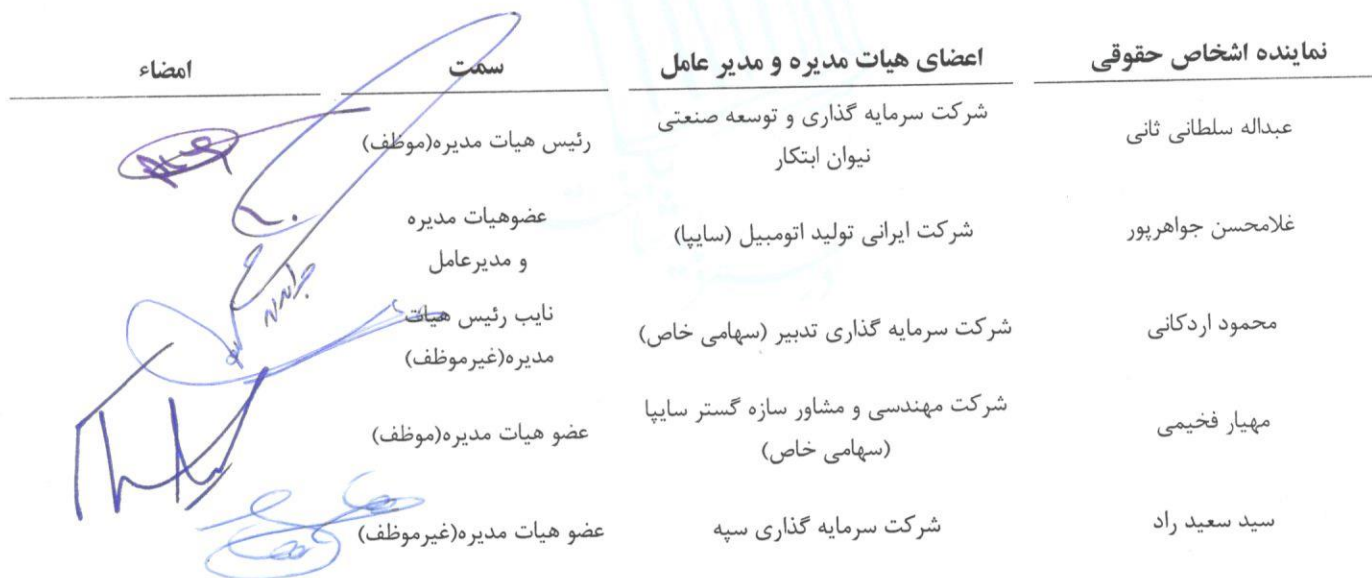 نماینده اشخاص حقوقی اعضای هیات مدیره و مدیر عامل سمت امضاء
عبداله سلطانی ثانی شرکت سرمایه گذاری و توسعه صنعتی رئیس هیات مدیره(موظف)
نیوان ابتکار
غلامحسن جواهرپور شرکت ایرانی تولید اتومبیل (سایپا) عضوهیات مدیره
و مدیرعامل
محمود اردکانی شرکت سرمایه گذاری تدبیر (سهامی خاص) نایب رئیس هیات
مدیره(غیرموظف)
مهیار فخیمی شرکت مهندسی و مشاور سازه گستر سایپا عضو هیات مدیره(موظف)
(سهامی خاص)
سید سعید راد شرکت سرمایه گذاری سپه عضو هیات مدیره(غیرموظف)